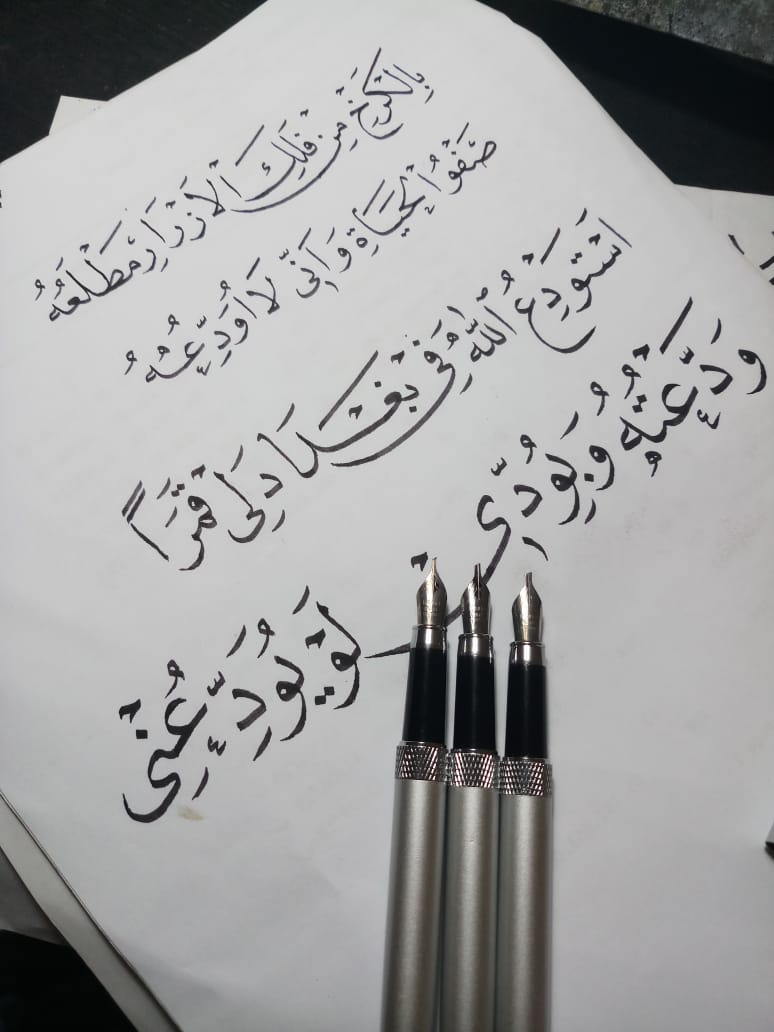 بِالْكَرْخِ مِن فَلَكِ الْاَزْرَارِ مَطْلَعُهُ
صَفْوُ الْحَيَاةِ وَاَنِّي لَا اُوَدِّعُهُ
اَسْتَودِعُ اللّٰهَ فِي بَغْدَادَ لِى قَمَرًا
وَدَّعْتُهُ وَبِوُدِّى لَوْ يُوَدِّعُنِى